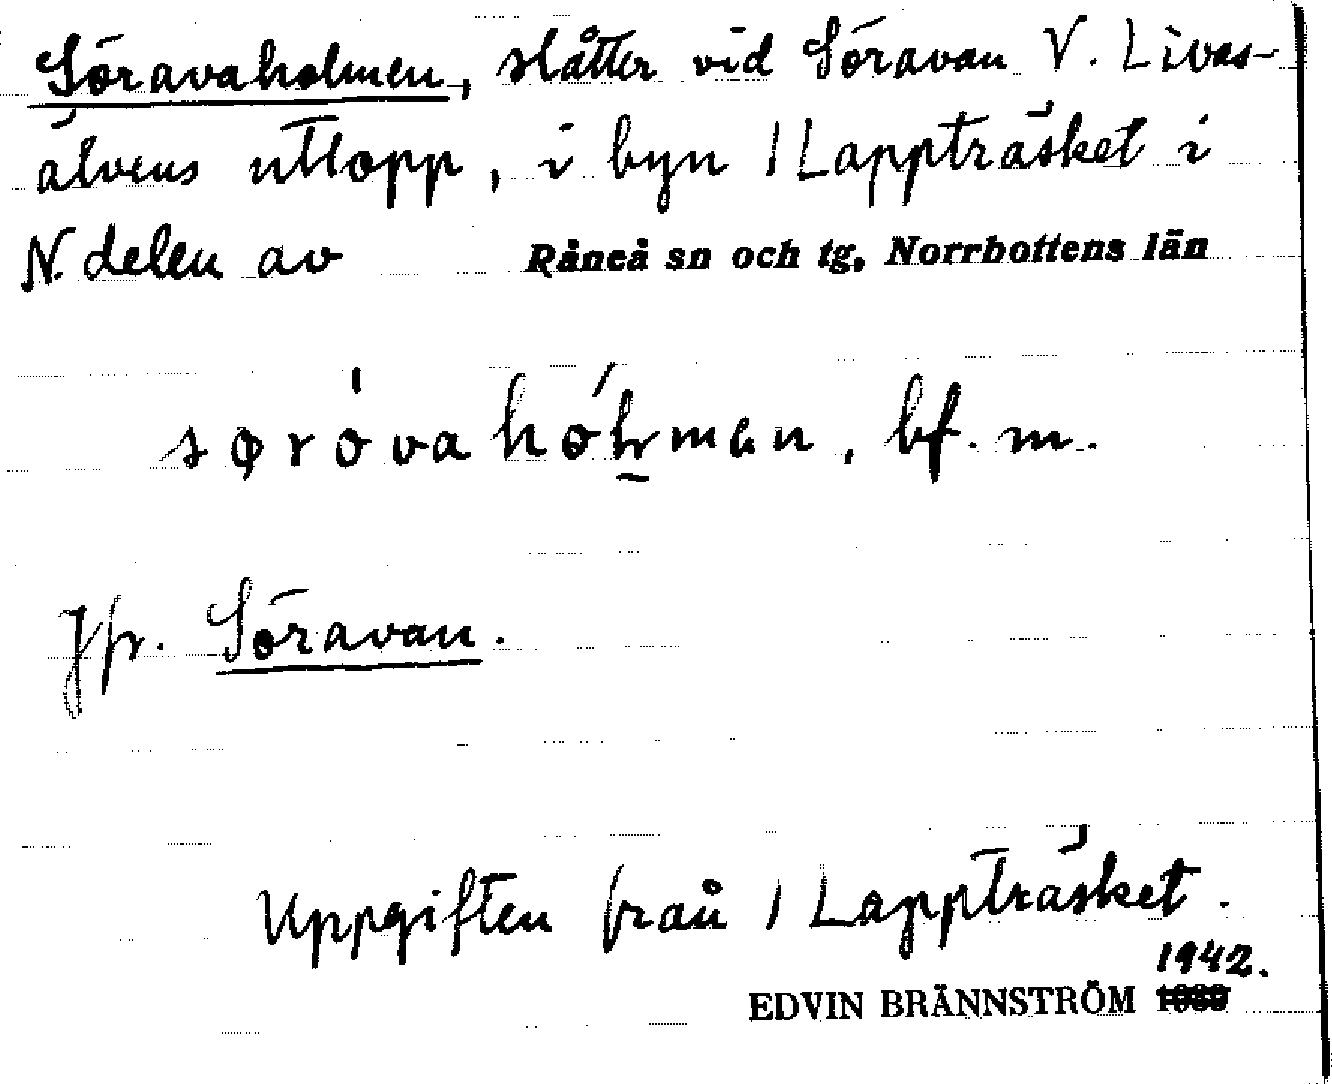 Söravaholmen, slåtter vid Söravan V. Livas-
älvens utlopp, i byn 1 Lappträsket i
N. delen av Råneå sn och tg, Norrbottens län
bf. m.
Jfr. Söravan.
Uppgiften från 1 Lappträsket.
1942.
EDVIN BRÄNNSTRÖM